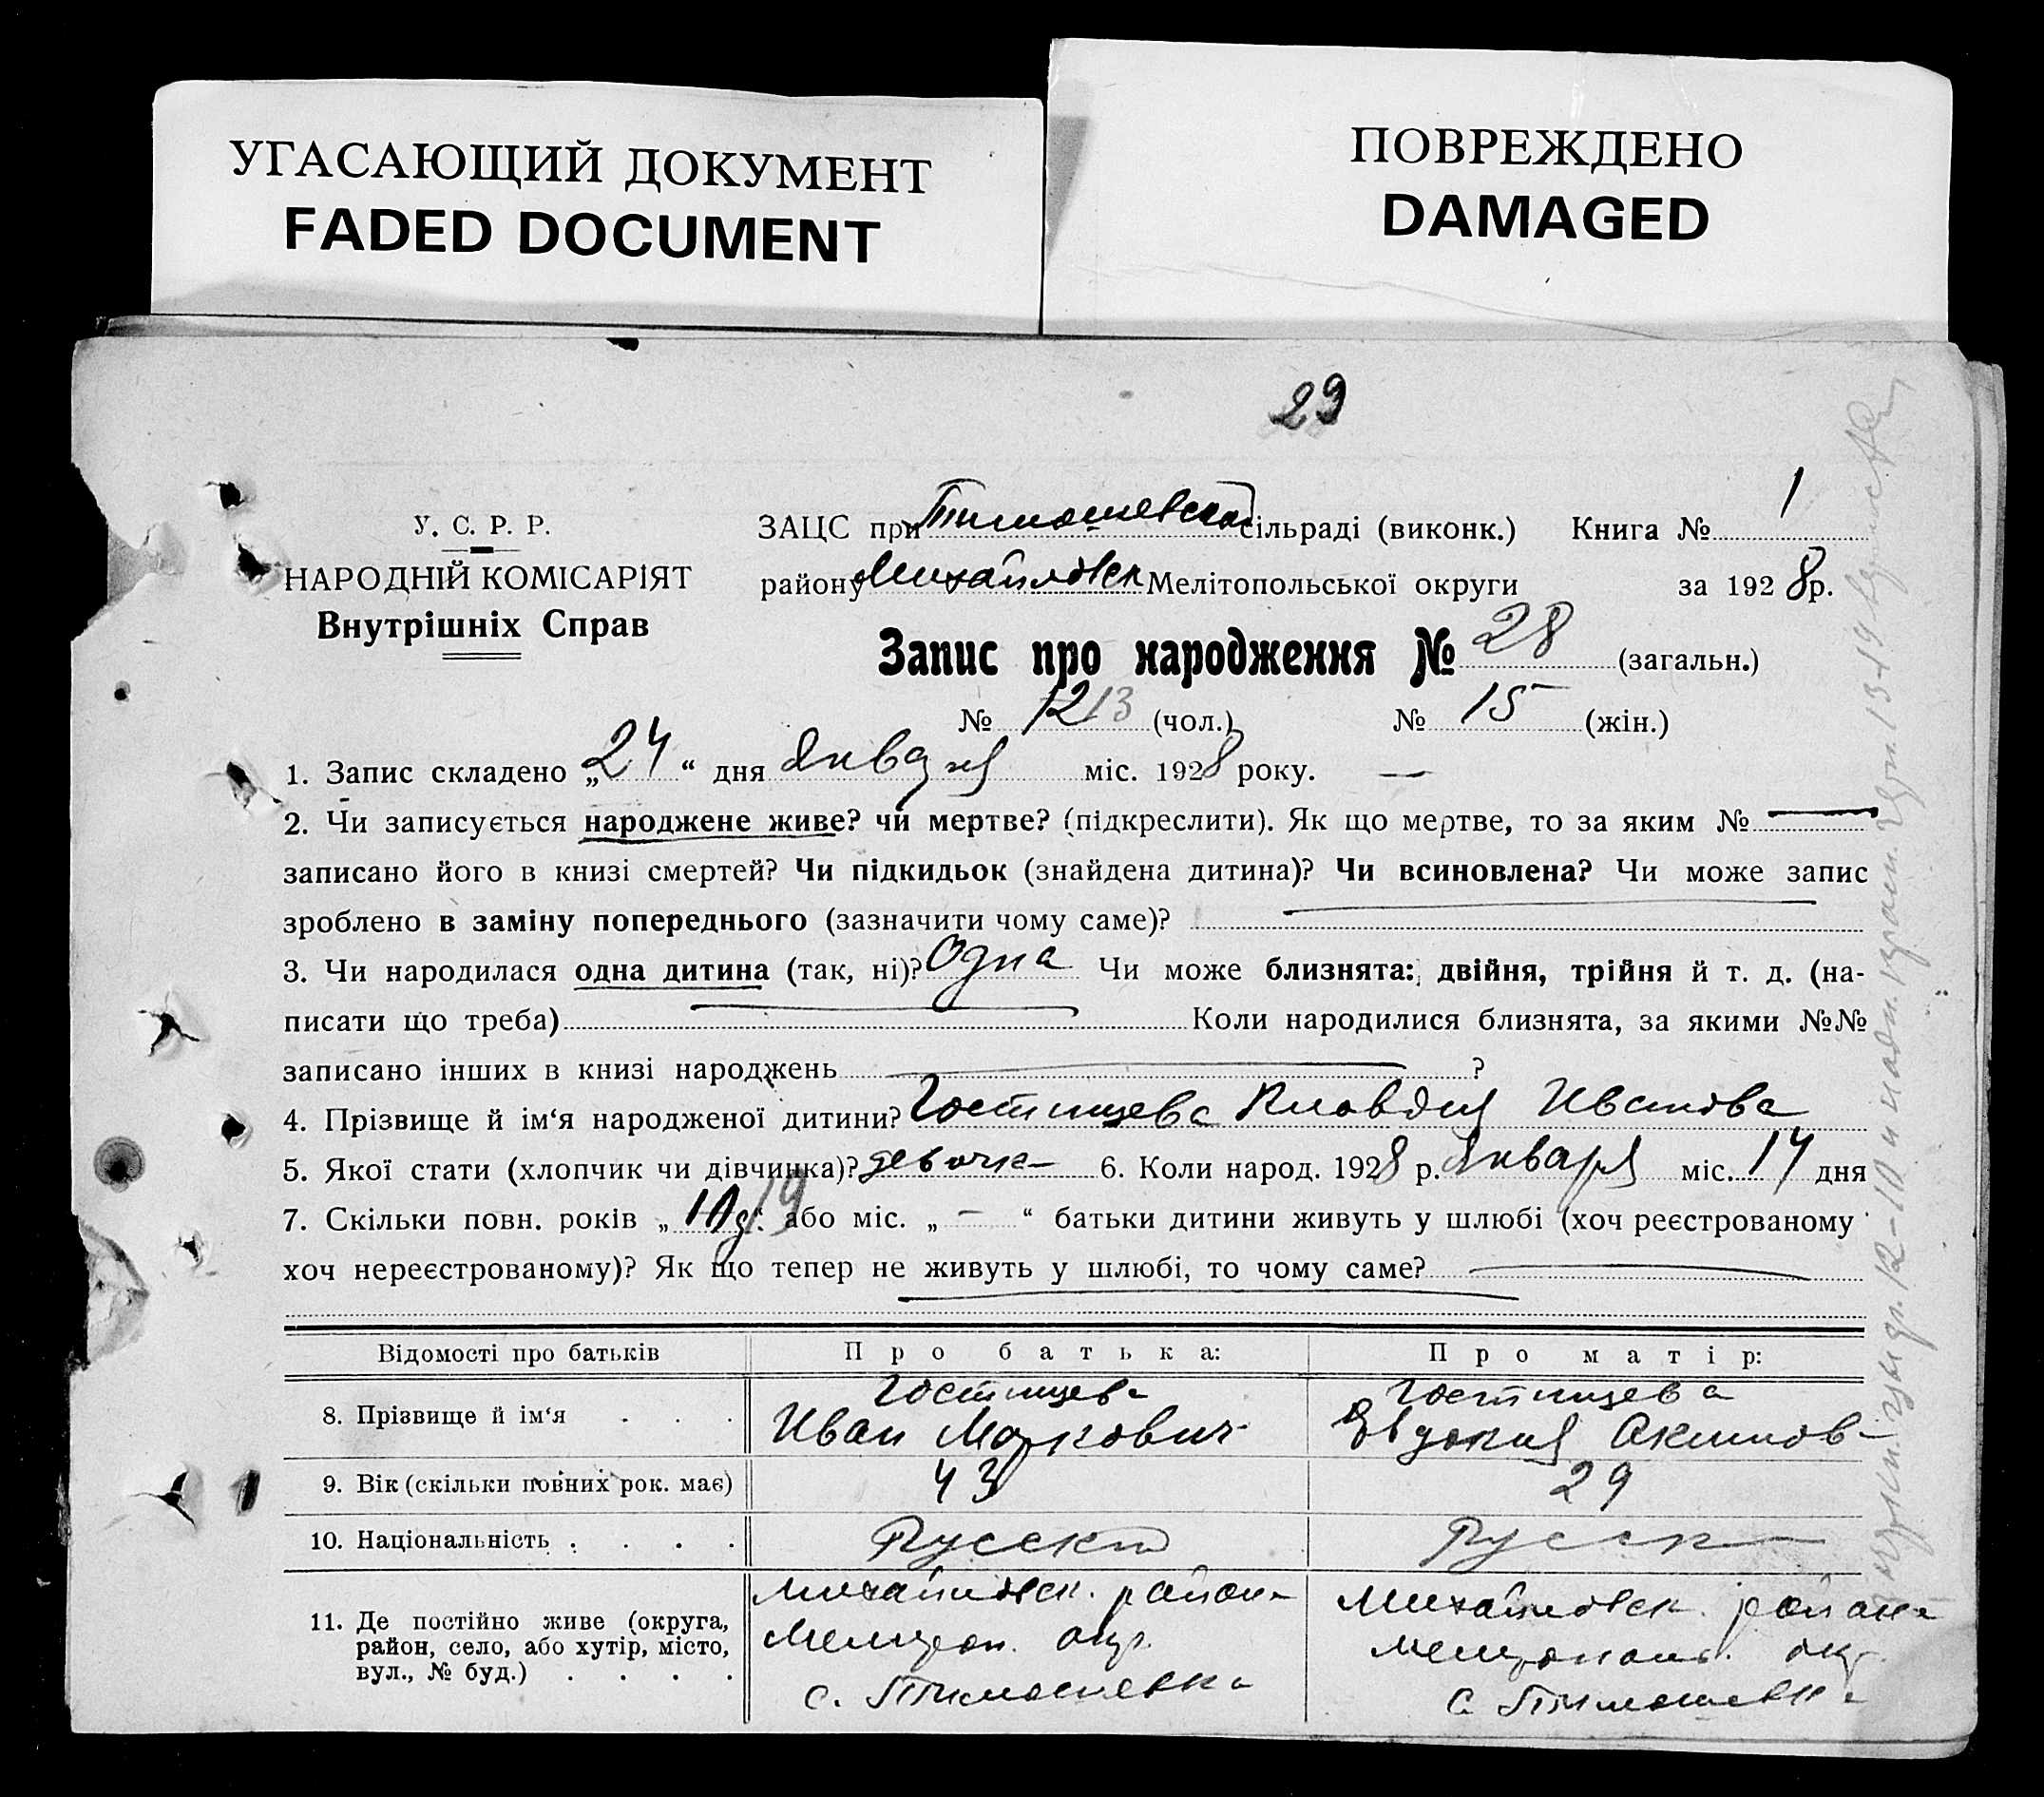 УГАСАЮЩИЙ ДОКУМЕНТ
FADED DOCUMENT
ПОВРЕЖДЕНО
DAMAGED
29
У. С. Р. Р.
НАРОДНІЙ КОМІСАРІЯТ
Внутрішніх Справ
ЗАЦС при Тимошевской сільраді (виконк.) Книга № 1
району Михайловск Мелітопольської округи за 1928 р.
Запис про народження № 28 (загальн.)
№ 12 13 (чол.) № 15 (жін.)
1. Запис складено „24“ дня Января міс. 1928 року. —
2. Чи записується народжене живе? чи мертве? (підкреслити). Як що мертве, то за яким № —
записано його в книзі смертей? Чи підкидьок (знайдена дитина)? Чи всиновлена? Чи може запис
зроблено в заміну попереднього (зазначити чому саме)?
3. Чи народилася одна дитина (так, ні)? Одна Чи може близнята: двійня, трійня й т. д. (на-
писати що треба) Коли народилися близнята, за якими №№
записано інших в книзі народжень ?
4. Прізвище й ім‘я народженої дитини? Гостищева Клавдия Иванова
5. Якої стати (хлопчик чи дівчинка)? девочка 6. Коли народ. 1928 р. Января міс. 14 дня
7. Скільки повн. років „ 19 “ або міс. „ — “ батьки дитини живуть у шлюбі (хоч реєстрованому
хоч нереєстрованому)? Як що тепер не живуть у шлюбі, то чому саме?
Відомості про батьків Про батька: Про матір:
8. Прізвище й ім‘я . . . Гостищева Иван Маркович Гостищева Евдокия Акимов
9. Вік (скільки повних рок. має) 43 29
10. Національність . . . . Русский Русск
11. Де постійно живе (округа, Михайловск. района Михайловск. района
район, село, або хутір, місто, Мелитоп. окр. Мелитополь. окр.
вул., № буд.) . . . . с. Тимошевка с. Тимошевка